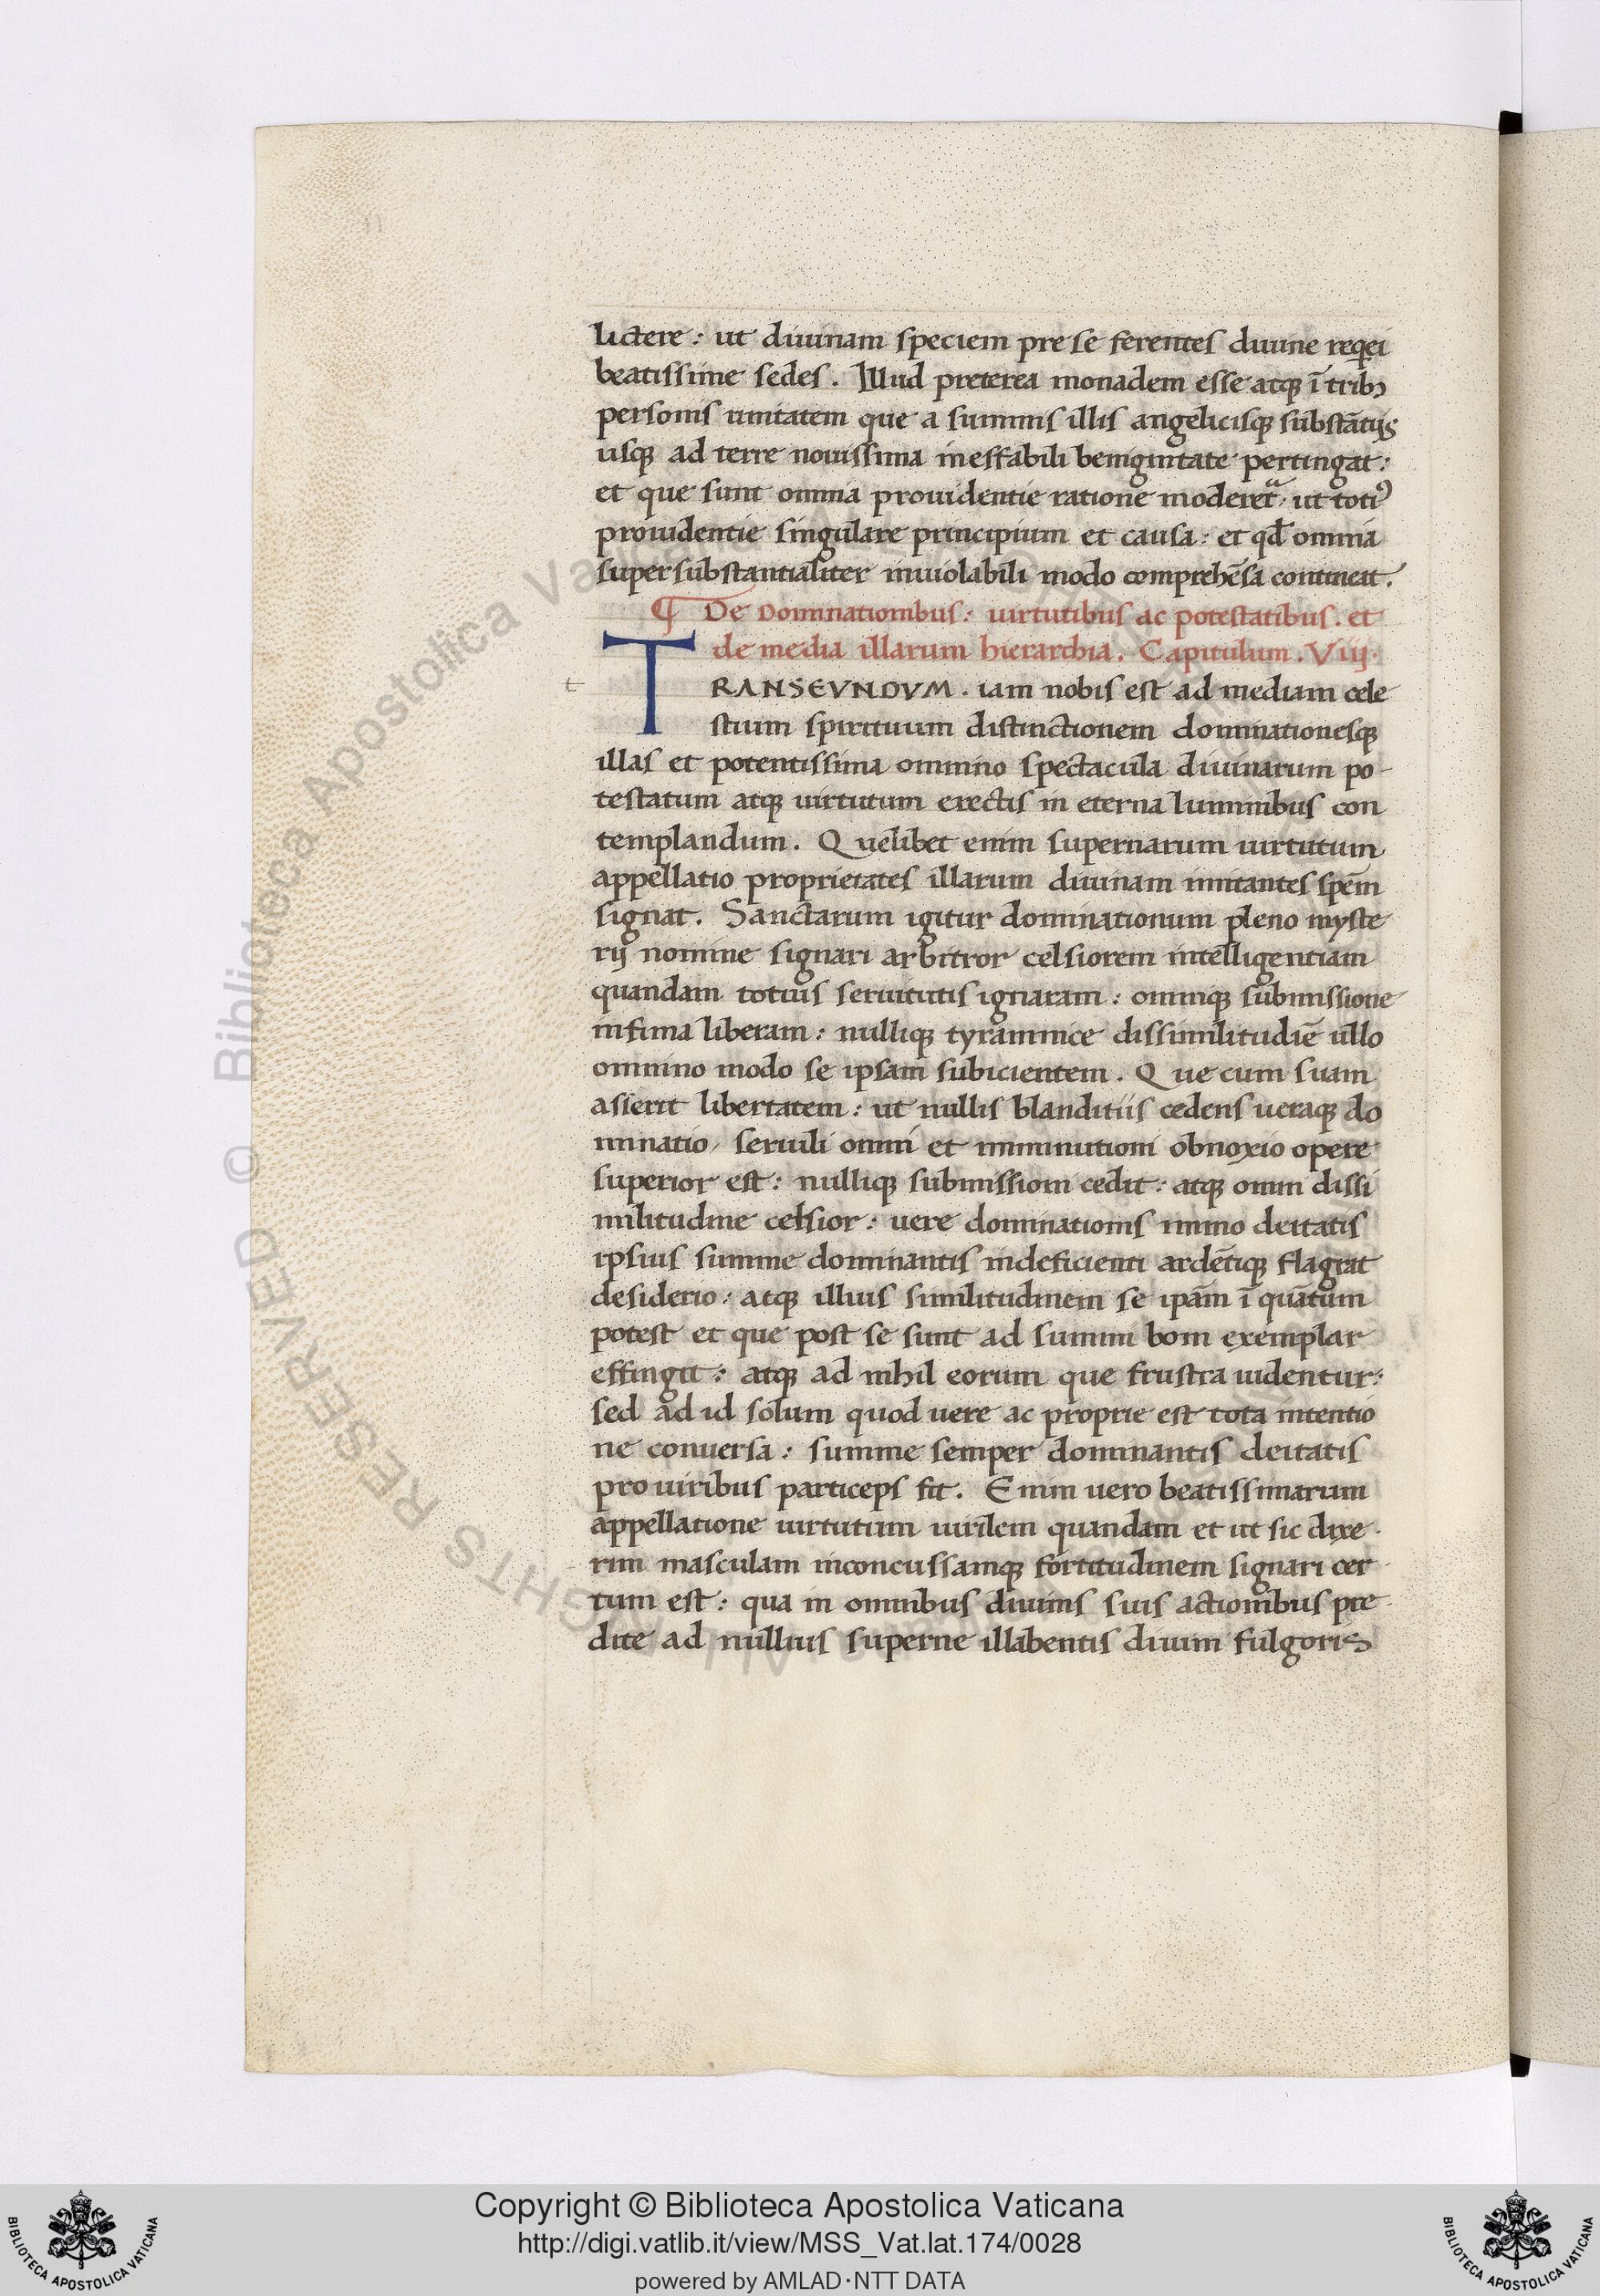 lictere: ut diuinam speciem pre se ferentes diuine reqei
beatissime sedes. Illud preterea monadem esse atqꝫ ī tribꝫ
personis unitatem que a summis illis angelicisqꝫ substātijs
usqꝫ ad terre nouissima ineffabili benignitate pertingat:
et que sunt omnia prouidentie ratione moderetᷓ. ut totiꝰ
prouidentie singulare principium et causa: et qđ omnia
supersubstantialiter inuiolabili modo comprehēsa contineat.
¶ De Dominationibus: uirtutibus ac potestatibus. et
de media illarum hierarchia. Capitulum. Viij.
t
TRANSEVNDVM. iam nobis est ad mediam cele
stium spirituum distinctionem dominationesqꝫ
illas et potentissima omnino spectacula diuinarum po-
testatum atqꝫ uirtutum erectis in eterna luminibus con
templandum. Quelibet enim supernarum uirtutum
appellatio proprietates illarum diuinam imitantes spēm
signat. Sanctarum igitur dominationum pleno myste
rij nomine signari arbitror celsiorem intelligentiam
quandam totius seruitutis ignaram: omniqꝫ submissione
infima liberam: nulliqꝫ tyrannice dissimilitudiē ullo
omnino modo se ipsam subicientem. Que cum suam
asierit libertatem: ut nullis blanditiis cedens ueraqꝫ do
minatio, seruili omni et imminutioni obnoxio opere
superior est: nulliqꝫ submissioni cedit: atqꝫ omni dissi
militudine celsior: uere dominationis immo deitatis
ipsius summe dominantis indeficienti ardētiqꝫ flagrat
desiderio: atqꝫ illius similitudinem se ipām ī quātum
potest et que post se sunt ad summi boni exemplar
effingit: atqꝫ ad nihil eorum que frustra uidentur:
sed ad id solum quod uere ac proprie est tota intentio
ne conuersa: summe semper dominantis deitatis
pro uiribus particeps fit. Enim uero beatissimarum
appellatione uirtutum uirilem quandam et ut sic dixe-
rim masculam inconcussamqꝫ fortitudinem signari cer-
tum est: qua in omnibus diuinis suis actionibus pre-
dite ad nullius superne illabentis diuini fulgoris
Copyright © Biblioteca Apostolica Vaticana
http://digi.vatlib.it/view/MSS_Vat.lat.174/0028
powered by AMLAD·NTT DATA
BIBLIOTECA APOSTOLICA VATICANA
BIBLIOTECA APOSTOLICA VATICANA